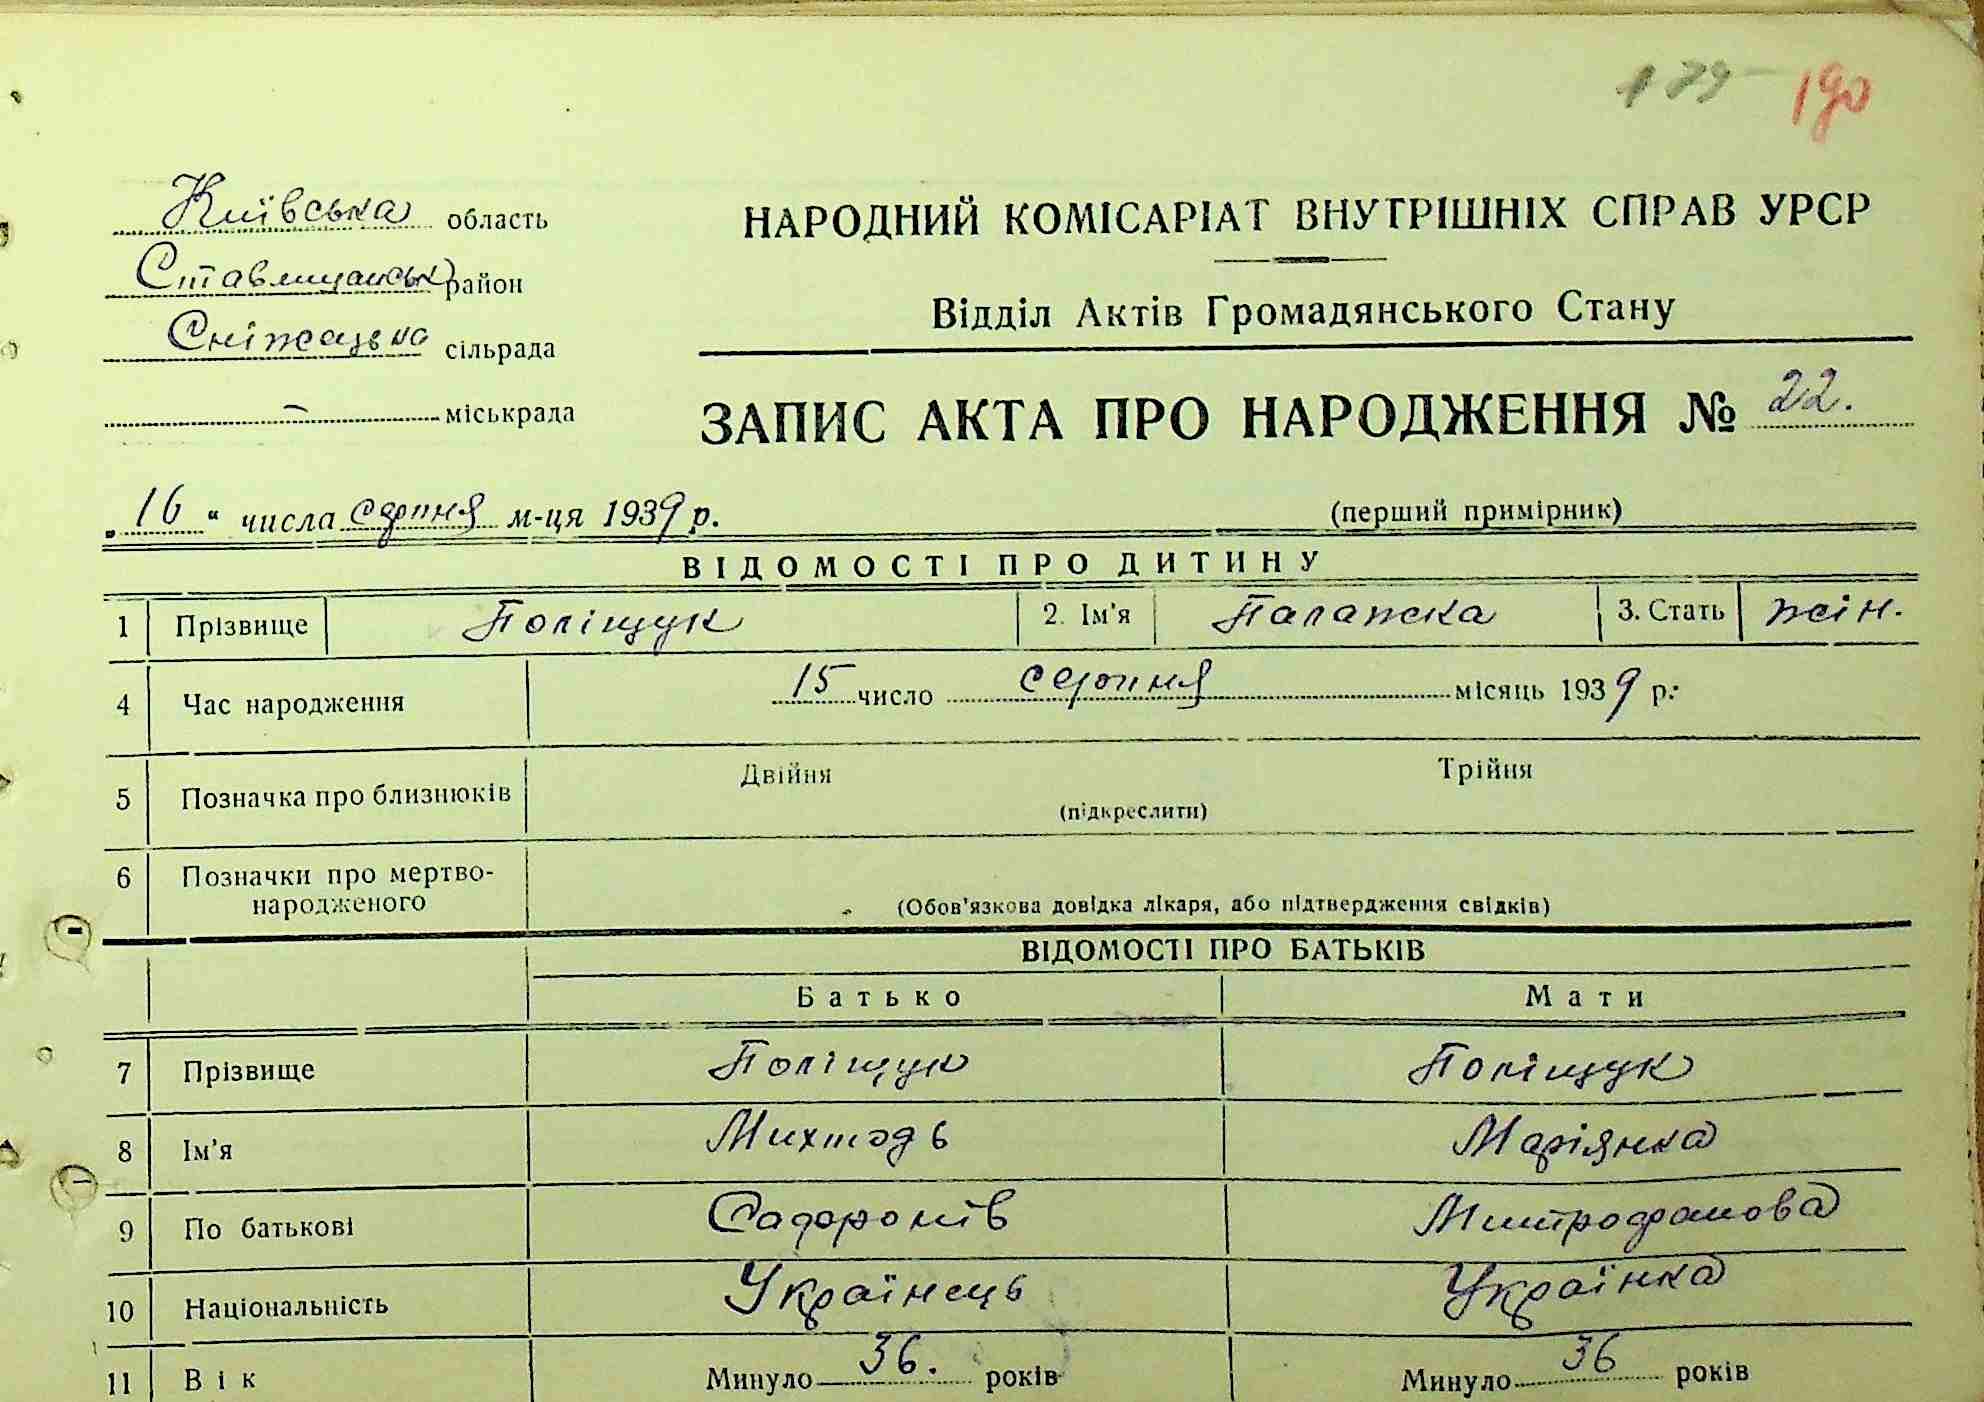 179 190
Київська область
Ставищанськ район
Сніжацька сільрада
— міськрада
НАРОДНИЙ КОМІСАРІАТ ВНУТРІШНІХ СПРАВ УРСР
Відділ Актів Громадянського Стану
ЗАПИС АКТА ПРО НАРОДЖЕННЯ № 22.
„16“ числа серпня м-ця 1939 р.
(перший примірник)
ВІДОМОСТІ ПРО ДИТИНУ
1 Прізвище Поліщук 2. Ім'я Палажка 3. Стать жін.
4 Час народження 15 число серпня місяць 1939 р.
5 Позначка про близнюків Двійня Трійня
(підкреслити)
6 Позначки про мертво-
народженого
(Обов'язкова довідка лікаря, або підтвердження свідків)
ВІДОМОСТІ ПРО БАТЬКІВ
Батько Мати
7 Прізвище Поліщук Поліщук
8 Ім'я Маріянка
9 По батькові Митрофанова
10 Національність Українець Українка
11 Вік Минуло 36. років Минуло 36 років